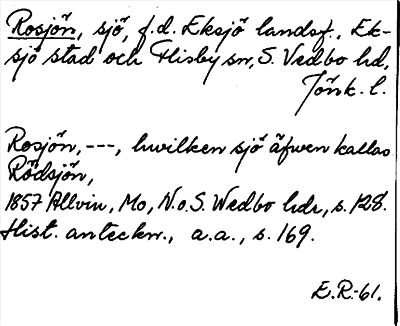 Rosjön, sjö, f.d. Eksjö landsf., Ek-
sjö stad och Flisby sn, S. Vedbo hd,
Jönk. l.
Rosjön, ---, hwilken sjö äfwen kallas
Rödsjön,
1857 Allvin, Mo, N.o.S. Wedbo hdr, s. 128.
Hist. anteckn., a.a., s. 169.
E.R.-61.